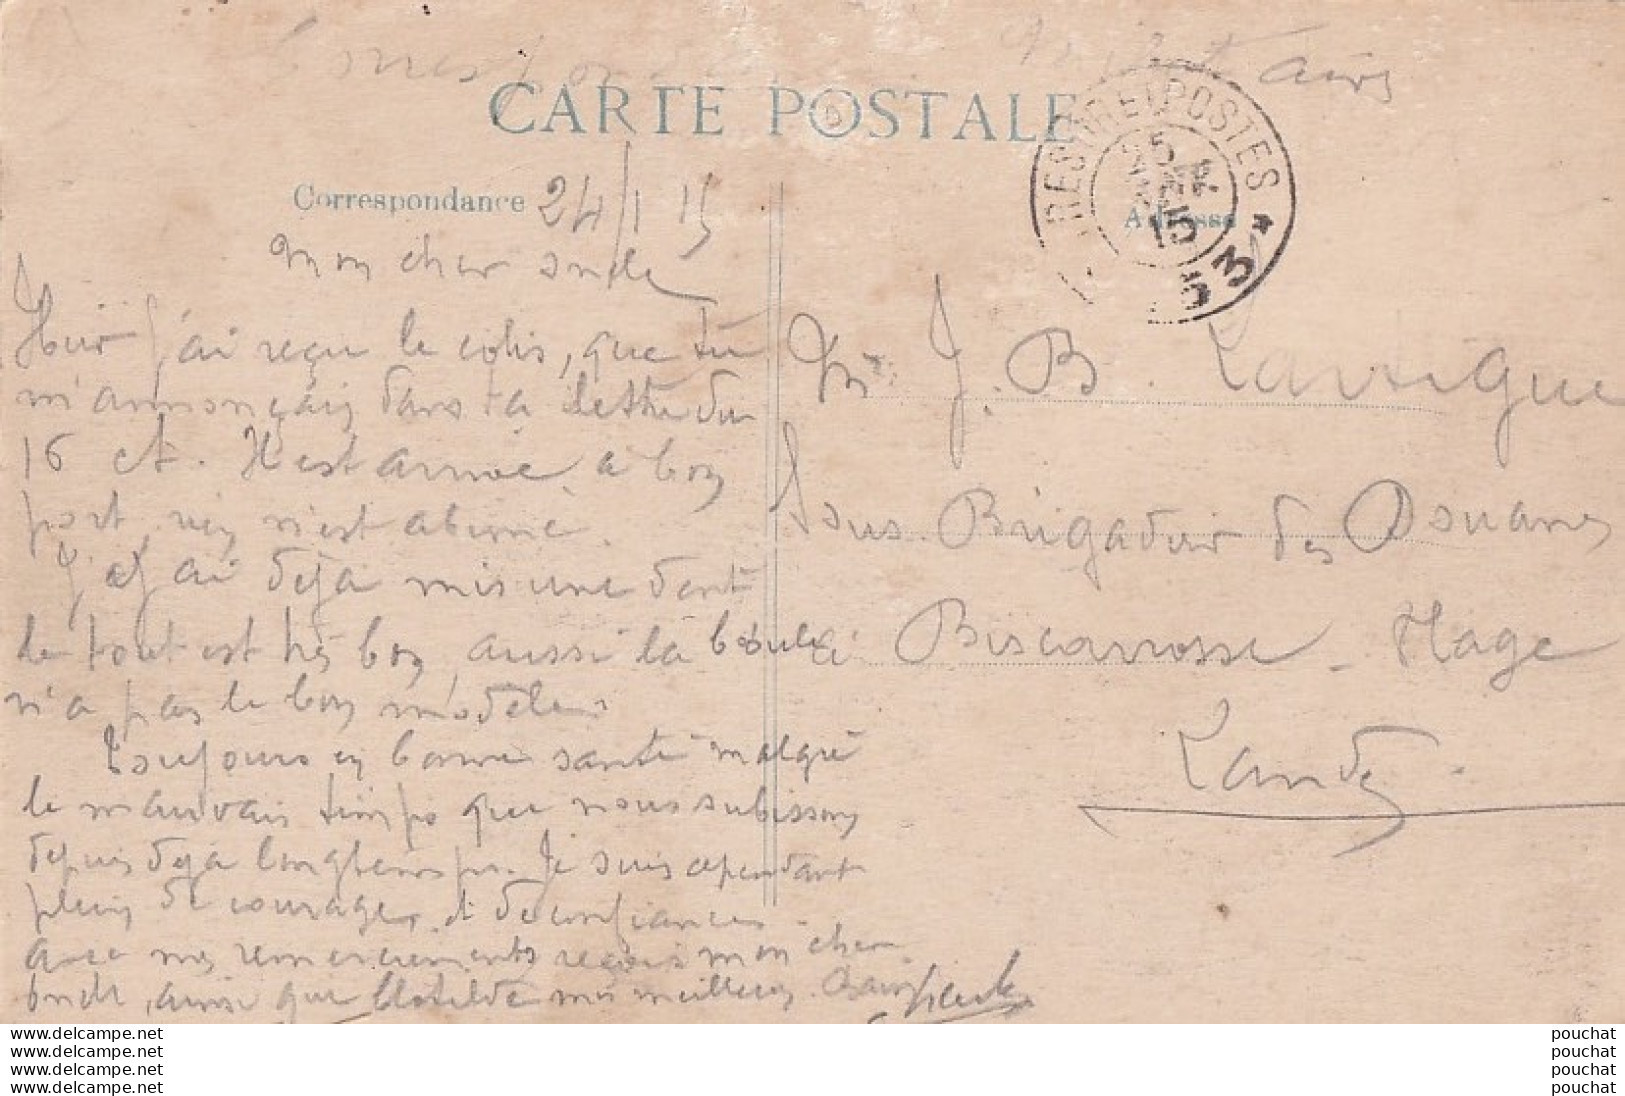 Correspondance Militaire
CARTE POSTALE
TRESOR ET POSTES
25
15
* 53
Correspondance 24/1 15
Adresse
Mon cher oncle
Hier j'ai reçu le colis, que tu
m'annonçais dans ta lettre du
16 ct. Il est arrivé à bon
port, rien n'est abimé.
J'ai déjà mis une dent
le tout est très bon, aussi la boule
n'a pas le bon modèle.
Toujours en bonne santé malgré
le mauvais temps que nous subissons
depuis déjà longtemps. Je suis cependant
plein de courage et de confiance.
avec mes remerciements reçois mon cher
oncle, ainsi que Clotilde mes meilleurs
Mr J. B. Lavigne
Sous Brigadier des Douanes
à Biscarrosse - Plage
Landes
www.delcampe.net
www.delcampe.net
www.delcampe.net
www.delcampe.net
pouchat
pouchat
pouchat
pouchat